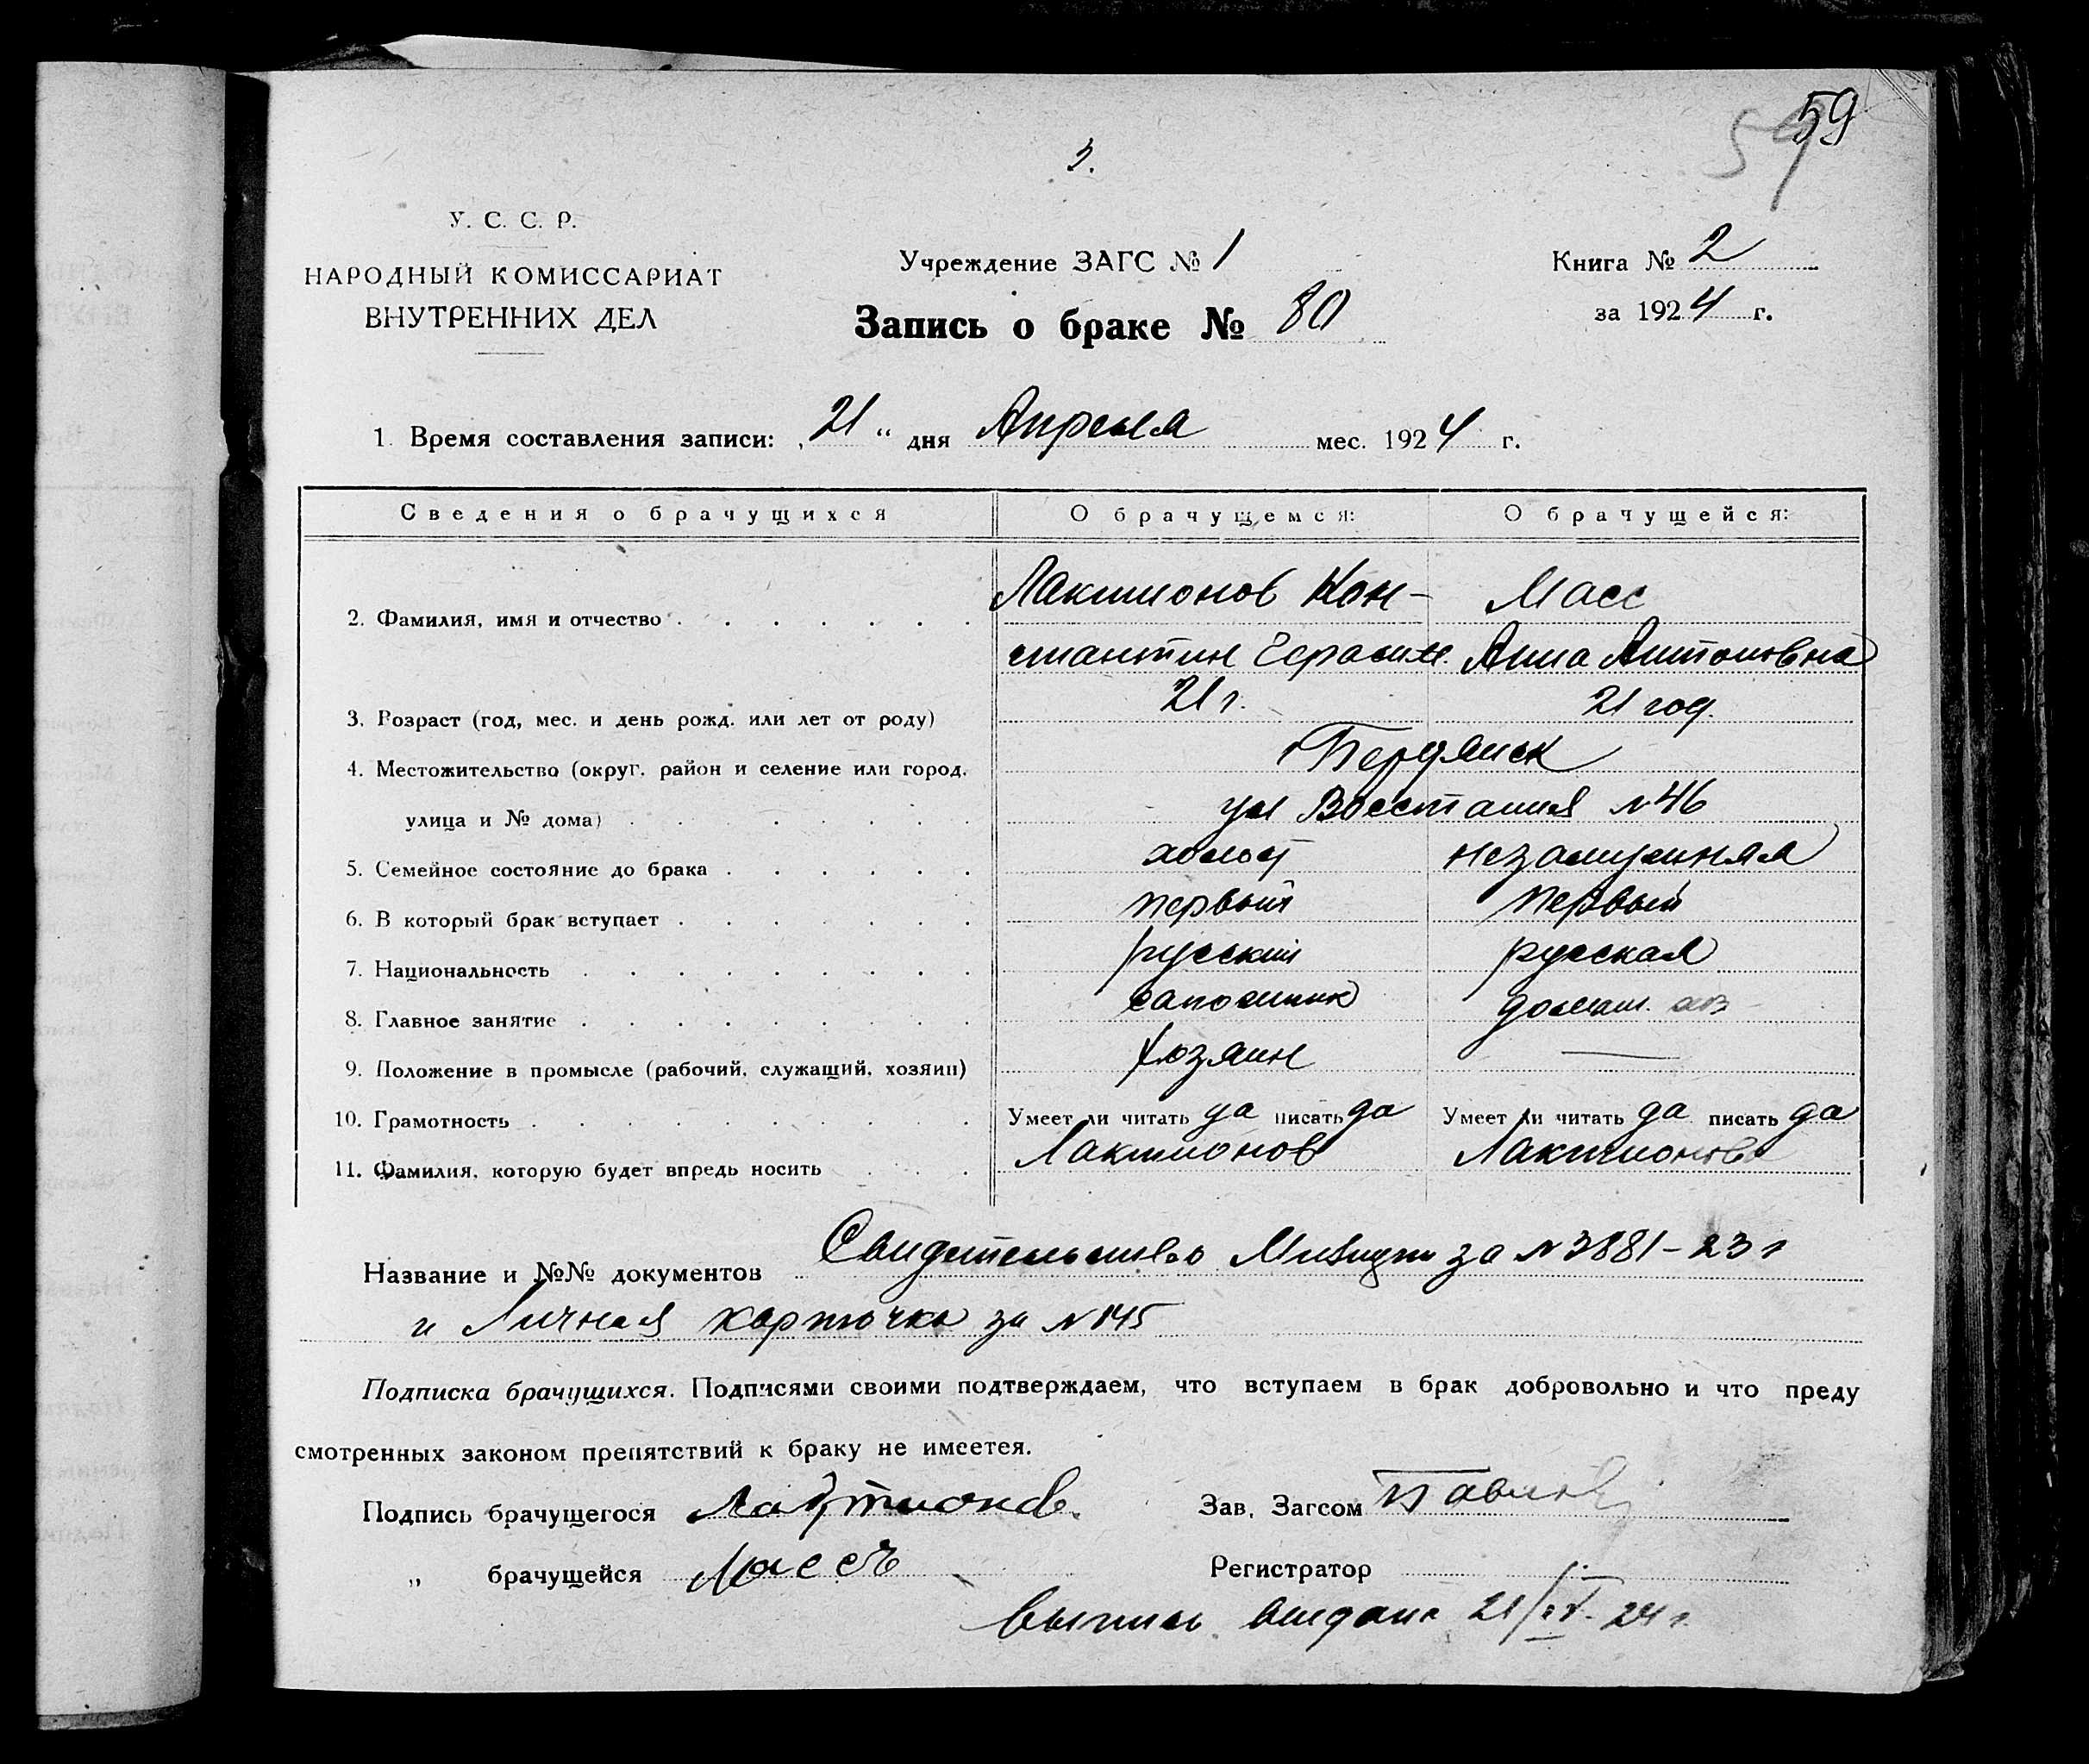 59
59
3.
У. С. С. Р.
НАРОДНЫЙ КОМИССАРИАТ
ВНУТРЕННИХ ДЕЛ
Учреждение ЗАГС № 1
Запись о браке № 80
Книга № 2
за 1924 г.
1. Время составления записи: „21“ дня Апреля мес. 1924 г.
Сведения о брачущихся О брачущемся: О брачущейся:
2. Фамилия, имя и отчество Лактионов Кон- Масс
стантин Герасим. Анна Антоновна
3. Возраст (год, мес. и день рожд. или лет от роду) 21 г. 21 год.
4. Местожительство (округ, район и селение или город, г Бердянск
улица и № дома) ул Восстания №46
5. Семейное состояние до брака холост незамужняя
6. В который брак вступает первый первый
7. Национальность русский русская
8. Главное занятие сапожник домаш. хоз
9. Положение в промысле (рабочий, служащий, хозяин) Хозяин —
10. Грамотность Умеет ли читать да писать да Умеет ли читать да писать да
11. Фамилия, которую будет впредь носить Лактионов Лактионова
Название и №№ документов Свидетельство за №3881-23 г
и Личная карточка за №145
Подписка брачущихся. Подписями своими подтверждаем, что вступаем в брак добровольно и что преду
смотренных законом препятствий к браку не имеетея.
Подпись брачущегося Лактионов. Зав. Загсом
„ брачущейся Массъ Регистратор
Выпись выдана 21/IV-24 г.